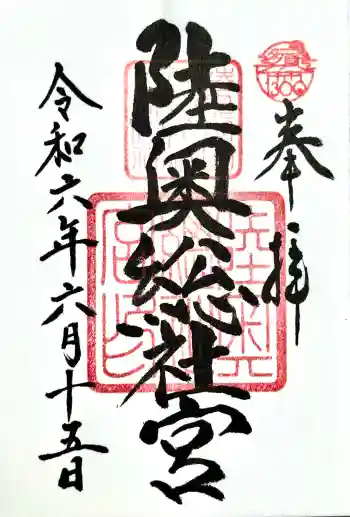 奉拝
陸奥総社宮
令和六年六月十五日
1300